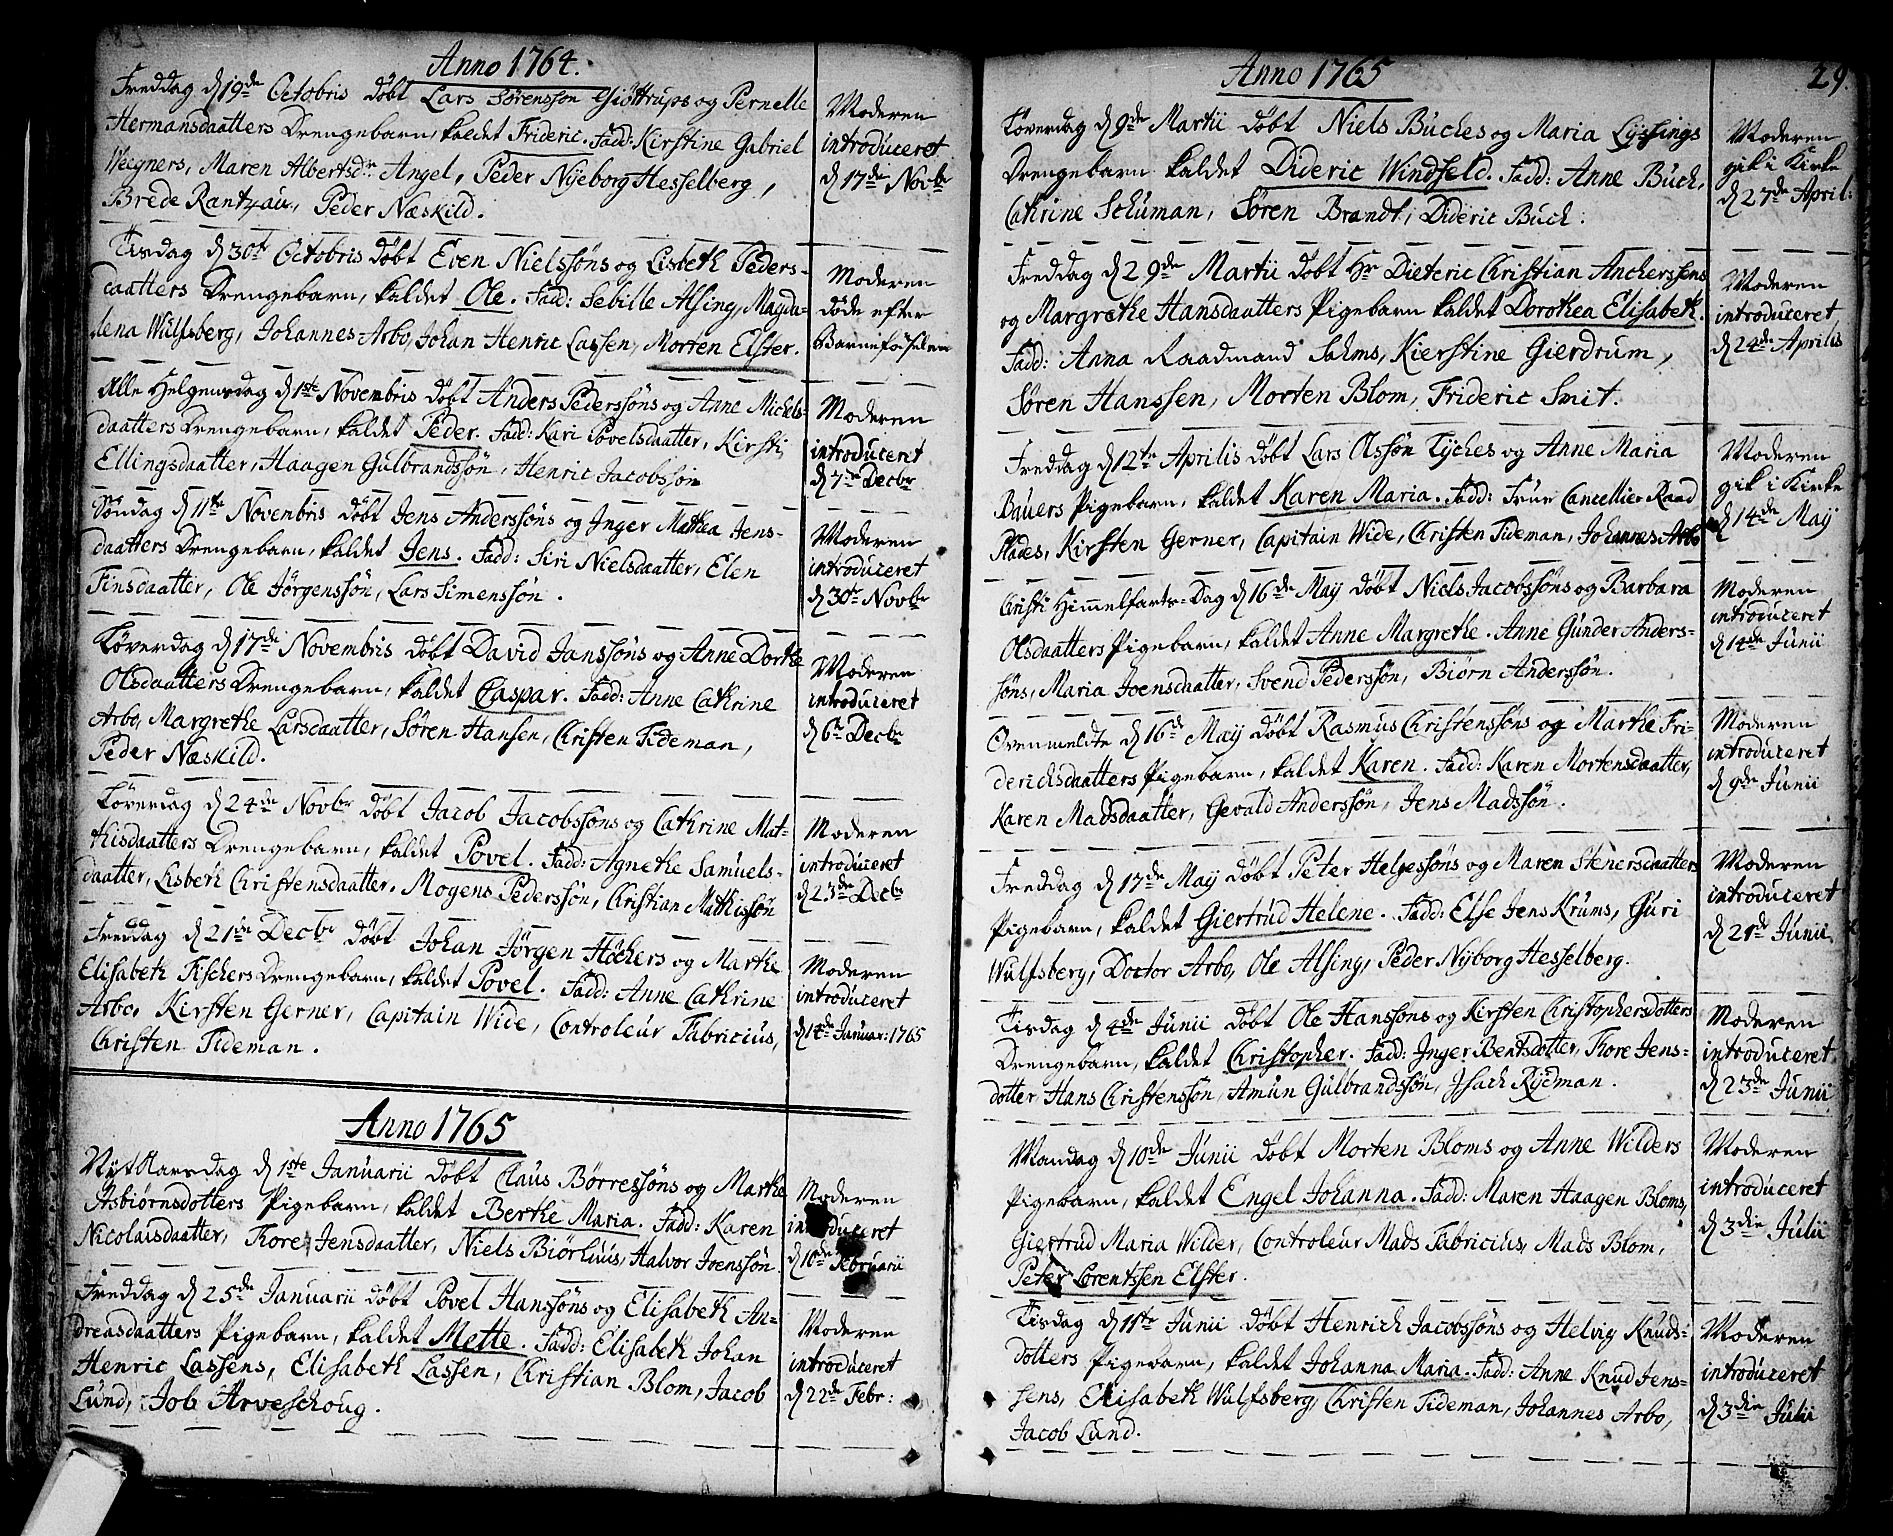 Anno 1764.
Freddag d 19de Octobris døbt Lars Sørenssøn Giøttrups og Pernelle
Hermansdaatters Drengebarn, kaldet Frideric. Fadd: Kirstine Gabriel
Weigners, Maren Albertsdr Angel, Peder Nyeborg Hesselberg,
Brede Rantzau, Peder Næskild.
Moderen
introduceret
d 17de Novbr
Tisdag d 30te Octobris døbt Even Nielssøns og Lisbeth Peders-
daatters Drengebarn, kaldet Ole. Fadd: Sebille Alsing, Magda-
lena Wulfsberg, Johannes Arbo, Johan Henric Lassen, Morten Elster.
Moderen
døde efter
Barnefødselen
Alle Helgensdag d 1ste Novembris døbt Anders Pederssøns og Anne Michels-
daatters Drengebarn, kaldet Peder. Fadd: Kari Povelsdaatter, Kirsti
Ellingsdaatter, Haagen Gulbrandssøn, Henric Jacobssøn
Moderen
introduceret
d 7de Decbr
Søndag d 11te Novembris døbt Jens Anderssøns og Inger Mathea Jens-
daatters Drengebarn, kaldet Jens. Fadd: Siri Nielsdaatter, Elen
Finsdaatter, Ole Jørgenssøn, Lars Simenssøn.
Moderen
introduceret
d 30te Novbr
Løverdag d 17de Novembris døbt David Janssøns og Anne Dorthe
Olsdaatters Drengebarn, kaldet Caspar. Fadd: Anne Cathrine
Arbo, Margrethe Larsdaatter, Søren Hansen, Christen Tideman,
Peder Næskild.
Moderen
introduceret
d 6te Decbr
Løverdag d 24de Novbr døbt Jacob Jacobssøns og Cathrine Mat-
thisdaatters Drengebarn, kaldet Povel. Fadd: Agnethe Samuels-
daatter, Lisbeth Christensdaatter, Mogens Pederssøn, Christian Mathissøn
Moderen
introduceret
d 23de Decbr
Freddag d 21de Decbr døbt Johan Jørgen Höchers og Marthe
Elisabeth Fischers Drengebarn, kaldet Povel. Fadd: Anne Cathrine
Arbo, Kirsten Gerner, Capitain Wide, Controleur Fabricius,
Christen Tideman.
Moderen
introduceret
d 14de Januar: 1765
Anno 1765
Nyt Aarsdag d 1ste Januarii døbt Claus Børressøns og Marthe
Asbiørnsdotters Pigebarn, kaldet Berthe Maria. Fadd: Karen
Nicolaisdaatter, Thore Jensdaatter, Niels Biørhuus, Halvor Joenssøn.
Moderen
introduceret
d 10de Februarii
Freddag d 25de Januarii døbt Povel Hanssøns og Elisabeth An-
dreasdaatters Pigebarn, kaldet Mette. Fadd: Elisabeth Johan
Henric Lassens, Elisabeth Lassen, Christian Blom, Jacob
Lund, Job Arveschoug.
Moderen
introduceret
d 22de Febr:
Anno 1765
29
Løverdag d 9de Martii døbt Niels Buches og Maria Lyssings
Drengebarn kaldet Dideric Windfeld. Fadd: Anne Buch,
Cathrine Schuman, Søren Brandt, Dideric Buch:
Moderen
gik i Kirke
d 27de April:
Freddag d 29de Martii døbt Hr Dieteric Christian Ancherssens
og Margrethe Hansdaatters Pigebarn kaldet Dorothea Elisabeth.
Fadd: Anna Raadmand Sahms, Kierstine Gierdrum,
Søren Hanssen, Morten Blom, Frideric Smit.
Moderen
introduceret
d 24de Aprilis
Freddag d 12te Aprilis døbt Lars Olssøn Tyches og Anne Maria
Bauers Pigebarn, kaldet Karen Maria. Fadd: Frue Cancellie Raad
Blades, Kirsten Gerner, Capitain Wide, Christen Tideman, Johannes Arbo
Moderen
gik i Kirke
d 14de May
Christi Himmelfarts-Dag d 16de May døbt Niels Jacobssøns og Barbara
Olsdaatters Pigebarn, kaldet Anne Margrethe. Anne Gunder Anders-
søns, Maria Joensdaatter, Svend Pederssøn, Biørn Anderssøn.
Moderen
introduceret
d 14de Junii
Ovenmeldte d 16de May døbt Rasmus Christenssøns og Marthe Fri-
derichsdaatters Pigebarn, kaldet Karen. Fadd: Karen Mortensdaatter,
Karen Madsdaatter, Gevald Anderssøn, Jens Madssøn.
Moderen
introduceret
d 9de Junii
Freddag d 17de May døbt Peter Helgessøns og Maren Stenersdaatters
Pigebarn, kaldet Giertrud Helene. Fadd: Else Jens Krums, Guri
Wulfsberg, Doctor Arbo, Ole Alsing, Peder Nyborg Hesselberg.
Moderen
introduceret
d 21de Junii
Tisdag d 4de Junii døbt Ole Hanssøns og Kirsten Christophersdotters
Drengebarn, kaldet Christopher. Fadd: Inger Bentsdotter, Thore Jens-
dotter, Hans Christenssøn, Amun Gulbrandssøn, Isach Rydman.
Moderen
introduceret
d 23de Junii
Mandag d 10de Junii døbt Morten Bloms og Anne Wilders
Pigebarn, kaldet Engel Johanna. Fadd: Maren Haagen Bloms,
Giertrud Maria Wilder, Controleur Mads Fabricius, Mads Blom,
Peter Lorentssen Elster.
Moderen
introduceret
d 3die Julii
Tisdag d 11te Junii døbt Henrich Jacobssøns og Helvig Knuds-
dotters Pigebarn, kaldet Johanna Maria. Fadd: Anne Knud Jens-
sens, Elisabeth Wulfsberg, Christen Tideman, Johannes Arbo,
Jacob Lund.
Moderen
introduceret
d 3die Julii